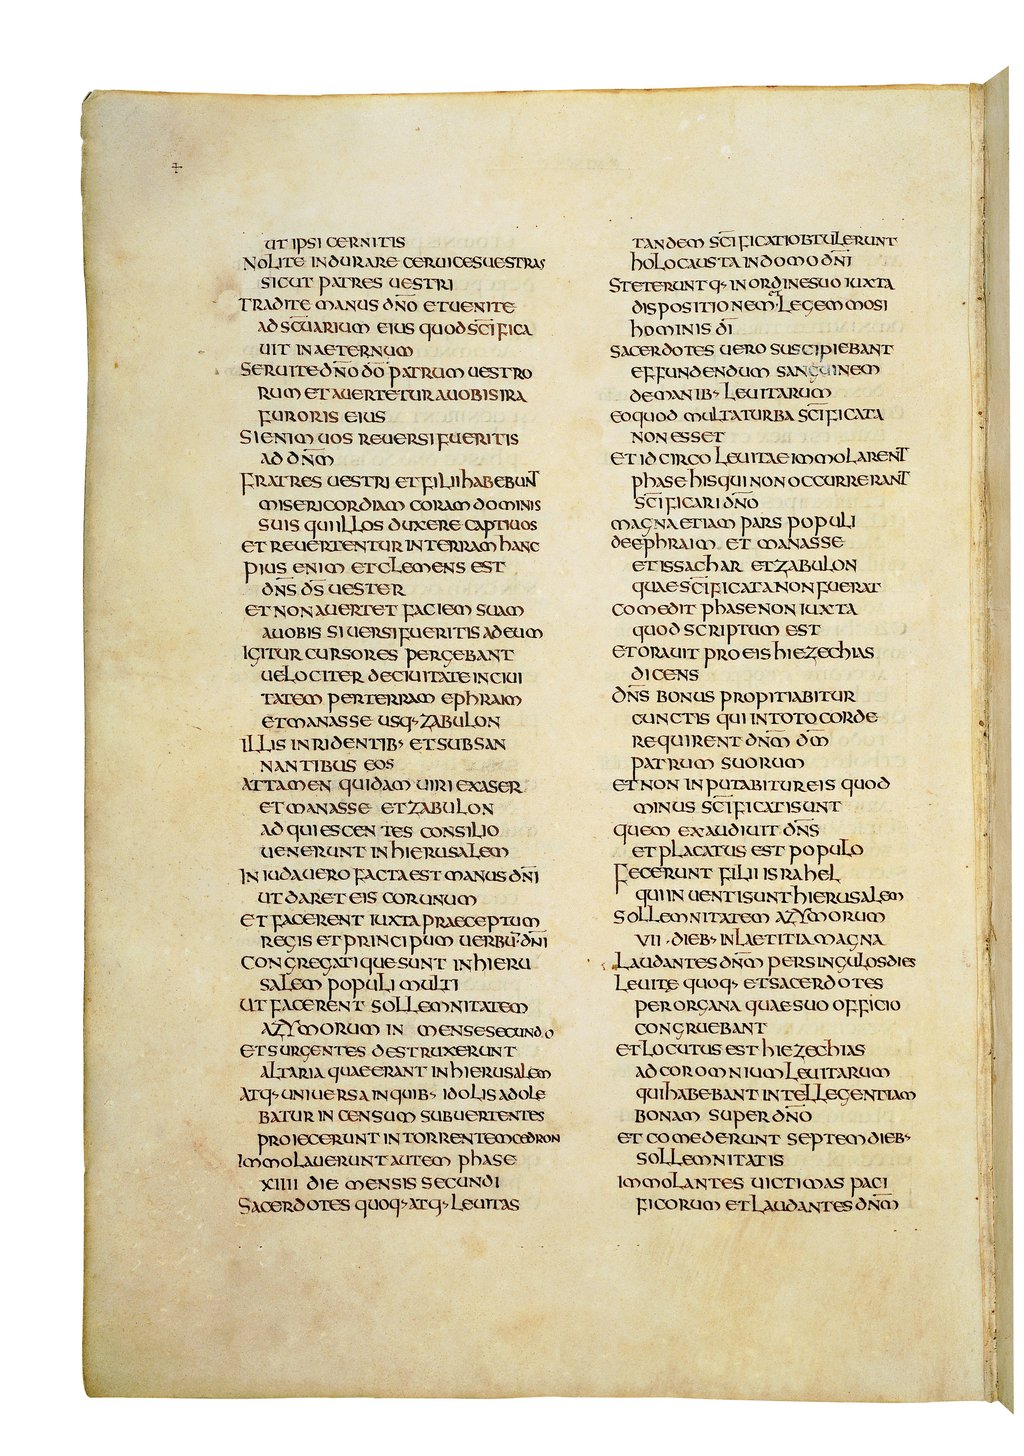 +
UT IPSI CERNITIS
NOLITE INDURARE CERUICES UESTRAS
SICUT PATRES UESTRI
TRADITE MANUS DN̄O ET UENITE
AD SCŪARIUM EIUS QUOD SCĪFICA
UIT IN AETERNUM
SERUITE DN̄O DŌ PATRUM UESTRO
RUM ET AUERTETUR A UOBIS IRA
FURORIS EIUS
SI ENIM UOS REUERSI FUERITIS
AD DN̄M
FRATRES UESTRI ET FILII HABEBUNT
MISERICORDIAM CORAM DOMINIS
SUIS QUI ILLOS DUXERE CAPTIUOS
ET REUERTENTUR IN TERRAM HANC
PIUS ENIM ET CLEMENS EST
DN̄S D̄S UESTER
ET NON AUERTET FACIEM SUAM
A UOBIS SI UERSI FUERITIS AD EUM
IGITUR CURSORES PERGEBANT
UELOCITER DE CIUITATE IN CIUI
TATEM PER TERRAM EPHRAIM
ET MANASSE USQ· ZABULON
ILLIS INRIDENTIB· ET SUBSAN
NANTIBUS EOS
ATTAMEN QUIDAM UIRI EX ASER
ET MANASSE ET ZABULON
ADQUIESCENTES CONSILIO
UENERUNT IN HIERUSALEM
IN IUDA UERO FACTA EST MANUS DN̄I
UT DARET EIS COR UNUM
ET FACERENT IUXTA PRAECEPTUM
REGIS ET PRINCIPUM UERBŪ· DN̄I
CONGREGATIQUE SUNT IN HIERU
SALEM POPULI MULTI
UT FACERENT SOLLEMNITATEM
AZYMORUM IN MENSE SECUNDO
ET SURGENTES DESTRUXERUNT
ALTARIA QUAE ERANT IN HIERUSALEM
ATQ· UNIUERSA IN QUIB· IDOLIS ADOLE
BATUR INCENSUM SUBUERTENTES
PROIECERUNT IN TORRENTEM CEDRON
IMMOLAUERUNT AUTEM PHASE
XIIII DIE MENSIS SECUNDI
SACERDOTES QUOQ· ATQ· LEUITAS
TANDEM SCĪFICATI OBTULERUNT
HOLOCAUSTA IN DOMO DN̄I
STETERUNTQ· IN ORDINE SUO IUXTA
DISPOSITIONEM· ET LEGEM MOSI
HOMINIS DĪ
SACERDOTES UERO SUSCIPIEBANT
EFFUNDENDUM SANGUINEM
DE MANIB· LEUITARUM
EO QUOD MULTA TURBA SCĪFICATA
NON ESSET
ET IDCIRCO LEUITAE IMMOLARENT
PHASE HIS QUI NON OCCURRERANT
SCĪFICARI DN̄O
MAGNA ETIAM PARS POPULI
DE EPHRAIM ET MANASSE
ET ISSACHAR ET ZABULON
QUAE SCĪFICATA NON FUERAT
COMEDIT PHASE NON IUXTA
QUOD SCRIPTUM EST
ET ORAUIT PRO EIS HIEZECHIAS
DICENS
DN̄S BONUS PROPITIABITUR
CUNCTIS QUI IN TOTO CORDE
REQUIRENT DN̄M D̄M
PATRUM SUORUM
ET NON INPUTABITUR EIS QUOD
MINUS SCĪFICATI SUNT
QUEM EXAUDIUIT DN̄S
ET PLACATUS EST POPULO
FECERUNT FILII ISRAHEL
QUI INUENTI SUNT HIERUSALEM
SOLLEMNITATEM AZYMORUM
VII · DIEB· IN LAETITIA MAGNA
LAUDANTES DN̄M PER SINGULOS DIES
LEUITE QUOQ· ET SACERDOTES
PER ORGANA QUAE SUO OFFICIO
CONGRUEBANT
ET LOCUTUS EST HIEZECHIAS
AD COR OMNIUM LEUITARUM
QUI HABEBANT INTELLEGENTIAM
BONAM SUPER DN̄O
ET COMEDERUNT SEPTEM DIEB·
SOLLEMNITATIS
IMMOLANTES UICTIMAS PACI
FICORUM ET LAUDANTES DN̄M